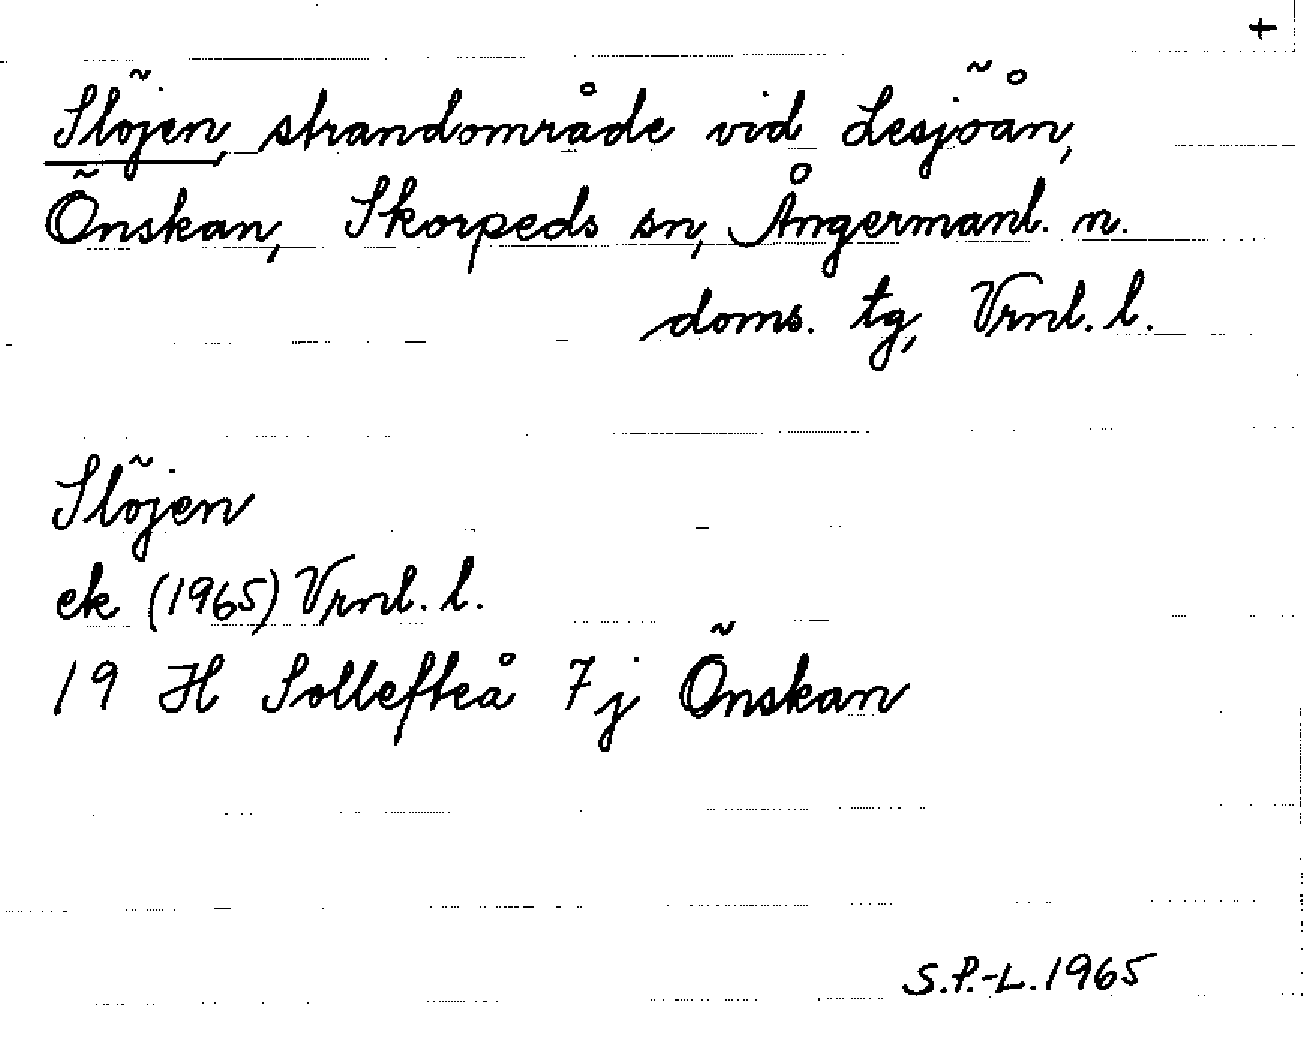 +
Slöjen, strandområde vid Lesjöån,
Önskan, Skorpeds sn, Ångermanl. n.
doms. tg, Vrnl. l.
Slöjen
ek (1965) Vrnl. l.
19 H Sollefteå 7j Önskan
S.P.-L. 1965